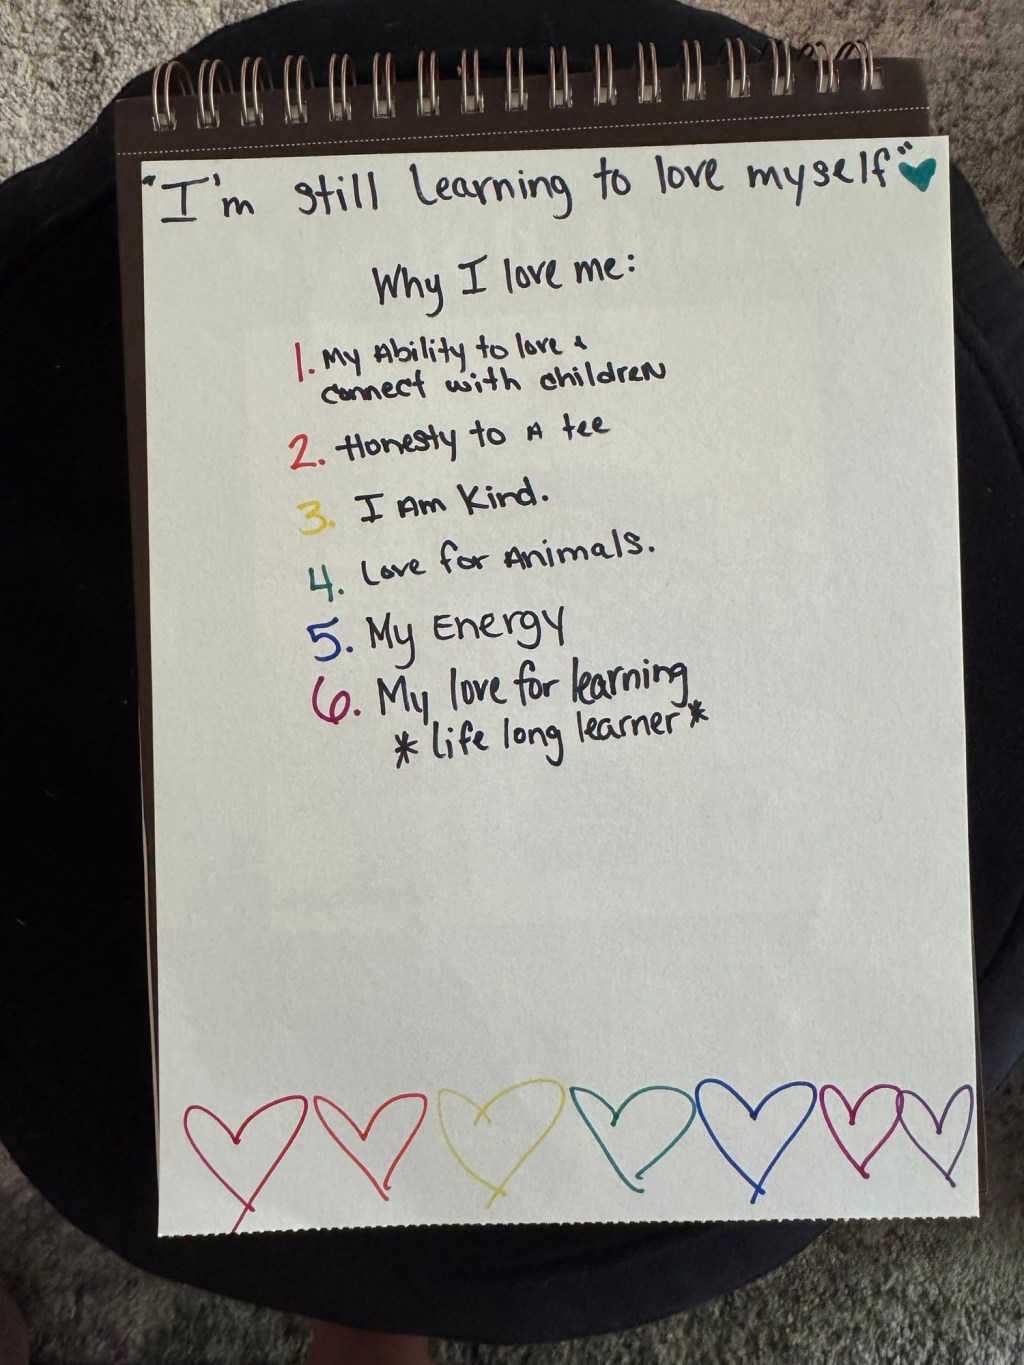 "I'm still Learning to love myself"
Why I love me:
1. My Ability to love &
connect with children
2. Honesty to A tee
3. I Am Kind.
4. Love for Animals.
5. My Energy
6. My love for learning
* life long learner *